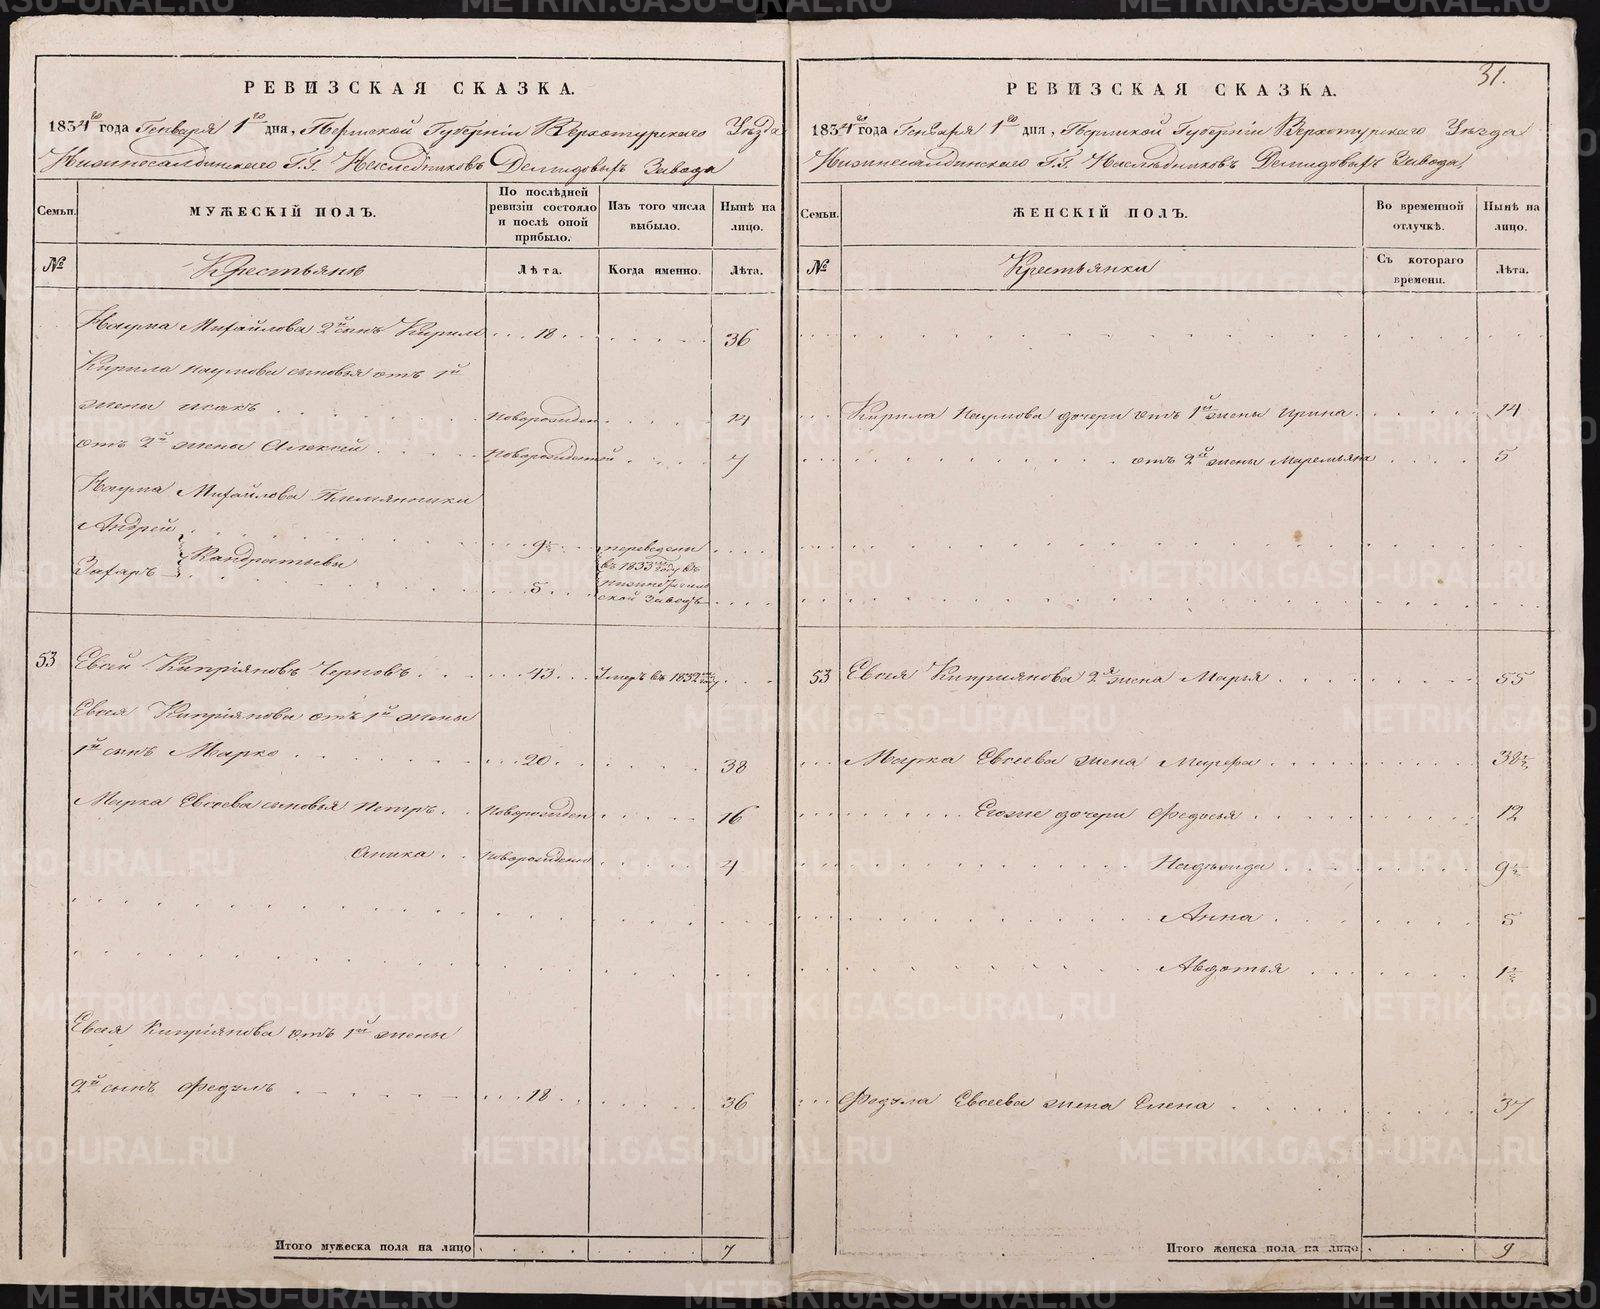 РЕВИЗСКАЯ СКАЗКА.
1834го года Генваря 1го дня, Пермской Губернiи Верхотурскаго Уѣзда
Нижнесалдинскаго Г.Г. Наслѣдниковъ Демидовыхъ Завода
Семьи.
МУЖЕСКІЙ ПОЛЪ.
По послѣдней ревизіи состояло и послѣ оной прибыло.
Изъ того числа выбыло.
Нынѣ на лицо.
№
Крестьянъ
Лѣта.
Когда именно.
Лѣта.
Наума Михайлова 2й сынъ Кирилъ 18 36
Кирила Наумова сыновья отъ 1й
жены Исакъ новорожден 14
отъ 2й жены Алексей новорожденной 7
Наума Михайлова Племянники
Андрей 9½ переведены
Кандратьевы въ 1833м году въ
Захаръ 5 нижнетагиль
ской заводъ
53 Евсей Кипріяновъ Черновъ 43 Умеръ въ 1832м году
Евсея Кипріянова отъ 1й жены
1й сынъ Марко 20 38
Марка Евсеева сыновья Петръ новорожден 16
Аника новорожденн 4
Евсея Кипріянова отъ 1й жены
2й сынъ Федулъ 18 36
Итого мужеска пола на лицо 7
31.
РЕВИЗСКАЯ СКАЗКА.
1834го года Генваря 1го дня, Пермской Губернiи Верхотурскаго Уѣзда
Нижнесалдинскаго Г.Г. Наслѣдниковъ Демидовыхъ Завода
Семьи.
ЖЕНСКІЙ ПОЛЪ.
Во временной отлучкѣ.
Нынѣ на лицо.
№
Крестьянки
Съ котораго времени.
Лѣта.
Кирила Наумова дочери отъ 1й жены Ирина 14
отъ 2й жены Маремьяна 5
53 Евсея Киприянова 2я жена Марья 55
Марка Евсеева жена Марфа 38½
Егоже дочери Федосья 12
Надѣжда 9½
Анна 5
Авдотья 1½
Федула Евсеева жена Елена 37
Итого женска пола на лицо 9
METRIKI.GASO-URAL.RU